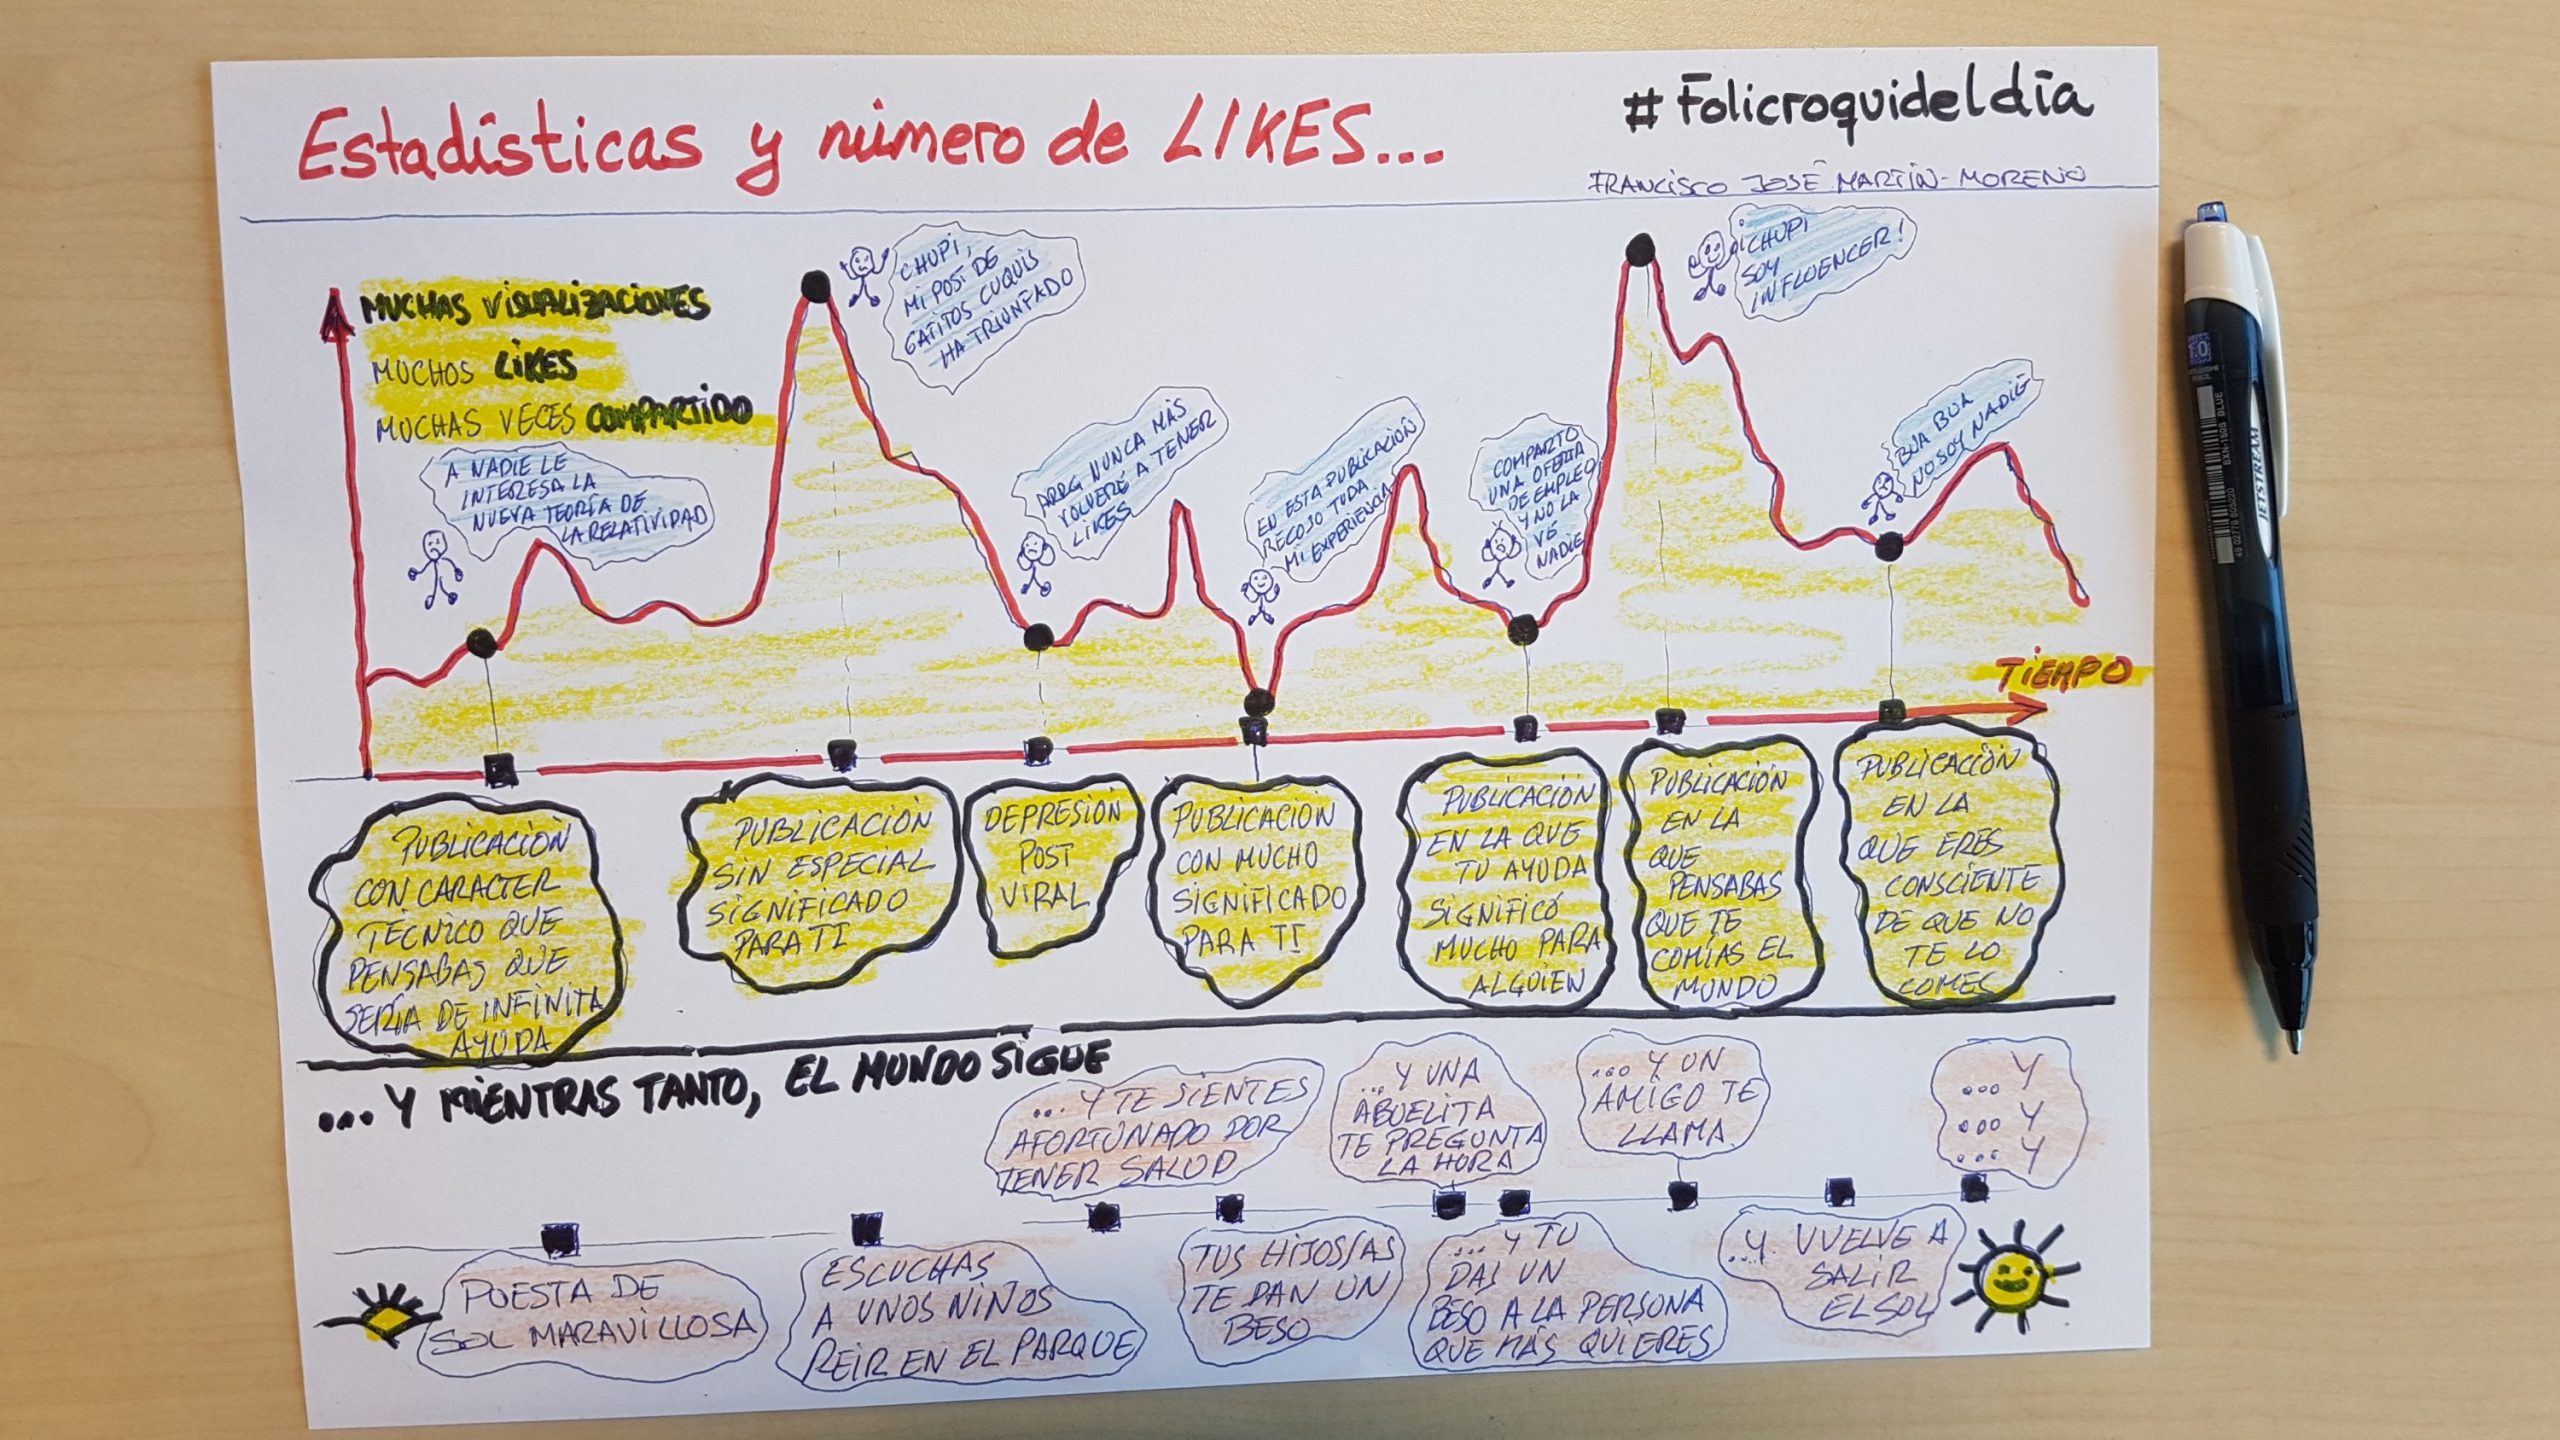 Estadísticas y número de LIKES...
#Folicroquideldía
FRANCISCO JOSÉ MARTÍN-MORENO
MUCHAS VISUALIZACIONES
MUCHOS LIKES
MUCHAS VECES COMPARTIDO
A NADIE LE
INTERESA LA
NUEVA TEORÍA DE
LA RELATIVIDAD
CHUPI,
MI POST DE
GATITOS CUQUIS
HA TRIUNFADO
ARRG NUNCA MÁS
VOLVERÉ A TENER
LIKES
EN ESTA PUBLICACIÓN
RECOJO TODA
MI EXPERIENCIA
COMPARTO
UNA OFERTA
DE EMPLEO
Y NO LA
VÉ
NADIE
¡CHUPI
SOY
INFLUENCER!
BUA BUA
NO SOY NADIE
TIEMPO
PUBLICACIÓN
CON CARACTER
TÉCNICO QUE
PENSABAS QUE
SERÍA DE INFINITA
AYUDA
PUBLICACIÓN
SIN ESPECIAL
SIGNIFICADO
PARA TI
DEPRESIÓN
POST
VIRAL
PUBLICACIÓN
CON MUCHO
SIGNIFICADO
PARA TI
PUBLICACIÓN
EN LA QUE
TU AYUDA
SIGNIFICÓ
MUCHO PARA
ALGUIEN
PUBLICACIÓN
EN LA
QUE
PENSABAS
QUE TE
COMÍAS EL
MUNDO
PUBLICACIÓN
EN LA
QUE ERES
CONSCIENTE
DE QUE NO
TE LO
COMES
...Y MIENTRAS TANTO, EL MUNDO SIGUE
PUESTA DE
SOL MARAVILLOSA
ESCUCHAS
A UNOS NIÑOS
REIR EN EL PARQUE
...Y TE SIENTES
AFORTUNADO POR
TENER SALUD
TUS HIJOS/AS
TE DAN UN
BESO
...Y UNA
ABUELITA
TE PREGUNTA
LA HORA
...Y TU
DAS UN
BESO A LA PERSONA
QUE MÁS QUIERES
...Y UN
AMIGO TE
LLAMA
...Y VUELVE A
SALIR
EL SOL
...Y
...Y
...Y
JETSTREAM
1.0
MITSUBISHI
PENCIL
SXN-150S BLUE